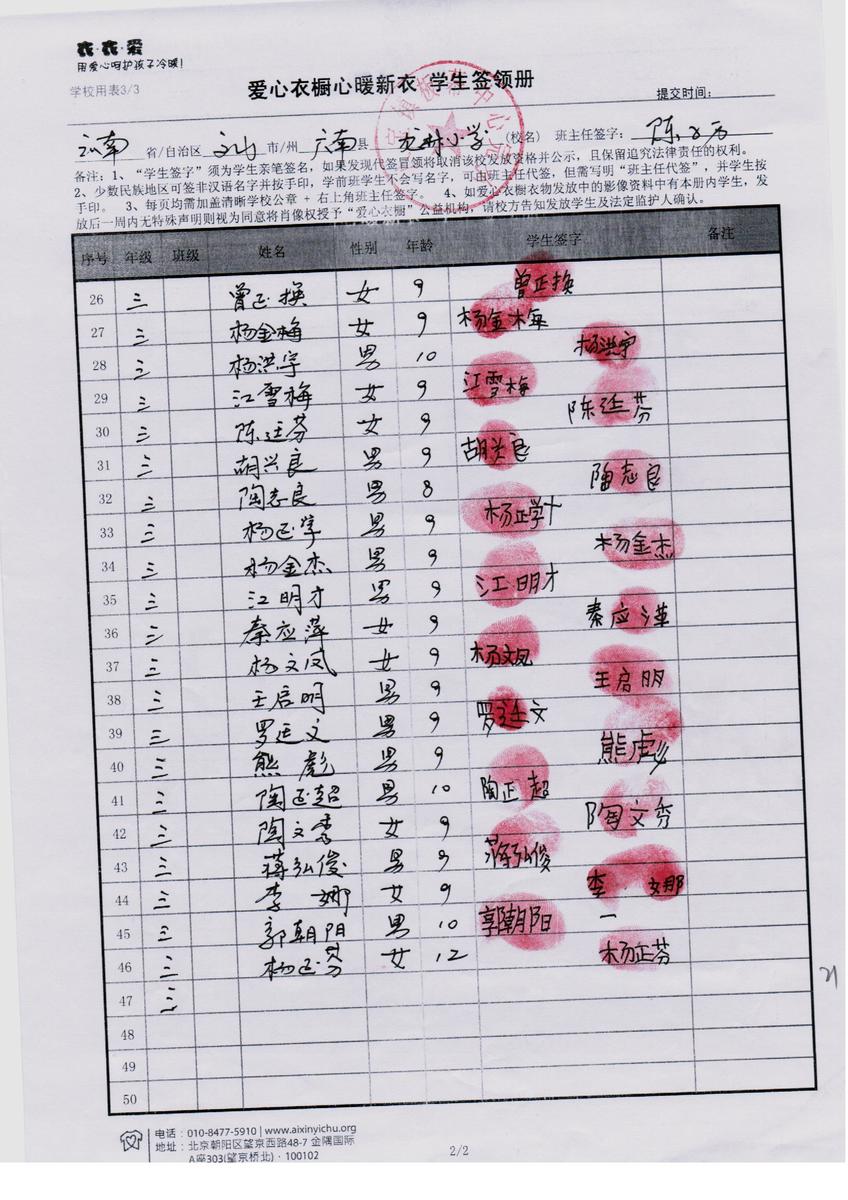 衣·衣·爱
用爱心呵护孩子冷暖!
学校用表3/3
爱心衣橱心暖新衣 学生签领册
提交时间:
云南 省/自治区 文山 市/州 广南 县 龙林小学 (校名) 班主任签字: 陈
备注:1、“学生签字”须为学生亲笔签名,如果发现代签冒领将取消该校发放资格并公示,且保留追究法律责任的权利。
2、少数民族地区可签非汉语名字并按手印,学前班学生不会写名字,可由班主任代签,但需写明“班主任代签”,并学生按
手印。 3、每页均需加盖清晰学校公章 + 右上角班主任签字。 4、如爱心衣橱衣物发放中的影像资料中有本册内学生,发
放后一周内无特殊声明则视为同意将肖像权授予“爱心衣橱”公益机构,请校方告知发放学生及法定监护人确认。
序号 年级 班级 姓名 性别 年龄 学生签字 备注
26 三 曾正换 女 9 曾正换
27 三 杨金梅 女 9 杨金梅
28 三 杨洪宇 男 10 杨洪宇
29 三 江雪梅 女 9 江雪梅
30 三 陈廷芬 女 9 陈廷芬
31 三 胡兴良 男 9 胡兴良
32 三 陶志良 男 8 陶志良
33 三 杨正学 男 9 杨正学
34 三 杨金杰 男 9 杨金杰
35 三 江明才 男 9 江明才
36 三 秦应萍 女 9 秦应萍
37 三 杨文凤 女 9 杨文凤
38 三 王启明 男 9 王启明
39 三 罗廷文 男 9 罗廷文
40 三 熊彪 男 9 熊彪
41 三 陶正超 男 10 陶正超
42 三 陶文秀 女 9 陶文秀
43 三 蒋弘俊 男 9 蒋弘俊
44 三 李娜 女 9 李娜
45 三 郭朝阳 男 10 郭朝阳
46 三 杨正芬 女 12 杨正芬
47 三
48
49
50
21
电话:010-8477-5910 | www.aixinyichu.org
地址:北京朝阳区望京西路48-7 金隅国际
A座303(望京桥北)·100102
2/2